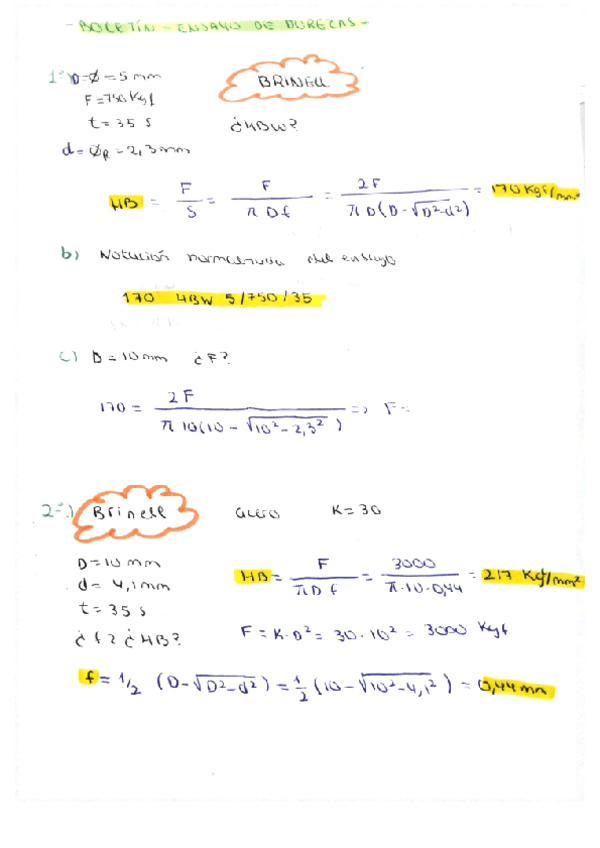 - BOLETÍN - ENSAYO DE DUREZAS -
1º) D=Ø=5mm
BRINELL
F=750Kgf
t=35 s
¿HBW?
d=ØR=2,3mm
HB = F/S = F/(π D f) = 2F/(π D(D-√(D²-d²))) = 170 Kgf/mm²
b) Notación normalizada del ensayo
170 HBW 5/750/35
c) D=10mm ¿F?
170 = 2F/(π 10(10-√(10²-2,3²))) => F=
2º.) Brinell
acero
K=30
D=10mm
d= 4,1mm
t=35 s
¿f? ¿HB?
HB = F/(π D f) = 3000/(π·10·0,44) = 217 Kgf/mm²
F=K·D²=30·10²=3000 Kgf
f=1/2 (D-√(D²-d²))=1/2(10-√(10²-4,1²))=0,44mm